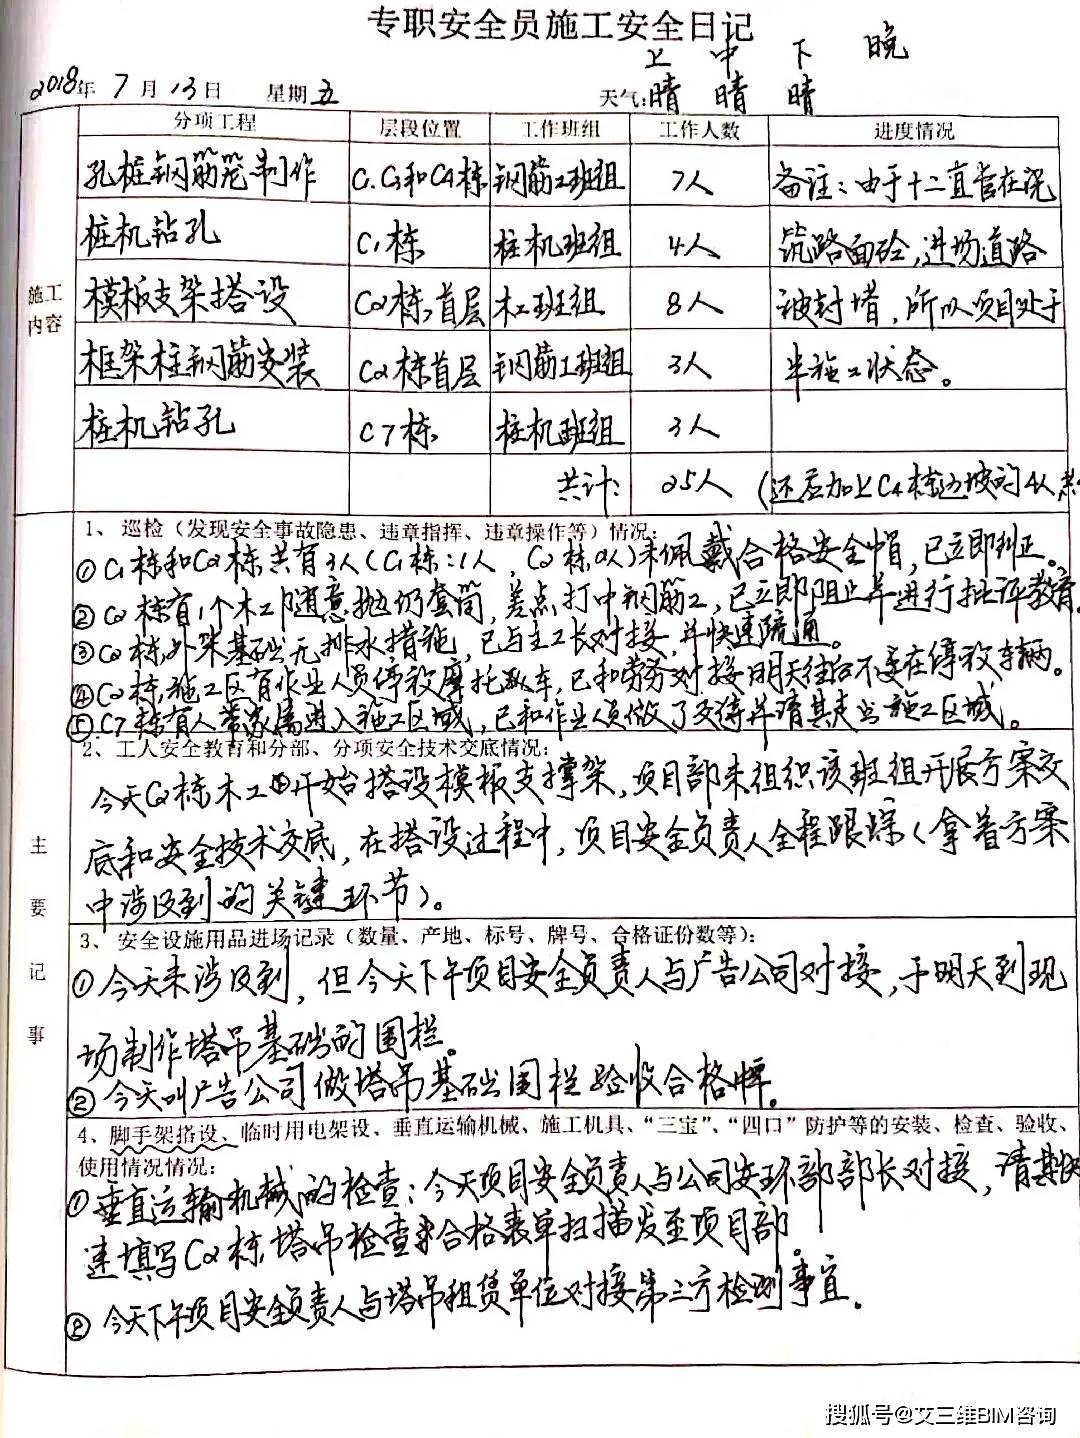 专职安全员施工安全日记
上 中 下 晚
2018年 7月13日 星期五 天气:晴 晴 晴
分项工程 层段位置 工作班组 工作人数 进度情况
孔桩钢筋笼制作 C1.C3和C4栋 钢筋工班组 7人 备注:由于十二直管在浇
桩机钻孔 C1栋 桩机班组 4人 筑路面砼,进场道路
施工内容
模板支架搭设 C2栋,首层 木工班组 8人 被封堵,所以项目处于
框架柱钢筋安装 C2栋首层 钢筋工班组 3人 半施工状态。
桩机钻孔 C7栋 桩机班组 3人
共计: 25人 (还应加上C4栋边坡的4人
1、巡检(发现安全事故隐患、违章指挥、违章操作等)情况:
①C1栋和C2栋共有3人(C1栋:1人,C2栋2人)未佩戴合格安全帽,已立即纠正。
②C2栋有1个木工随意抛扔套筒,差点打中钢筋工,已立即阻止并进行批评教育
③C2栋,外架基础无排水措施,已与主工长对接,并快速疏通。
④C2栋,施工区有作业人员停放摩托车,已和劳务对接明天往后不要在停放车辆。
⑤C7栋有人带家属进入施工区域,已和作业人员做了交待并请其走出施工区域。
2、工人安全教育和分部、分项安全技术交底情况:
今天C2栋木工开始搭设模板支撑架,项目部未组织该班组开展方案交
底和安全技术交底,在搭设过程中,项目安全负责人全程跟踪(拿着方案
中涉及到的关键环节)。
主要记事
3、安全设施用品进场记录(数量、产地、标号、牌号、合格证份数等):
①今天未涉及到,但今天下午项目安全负责人与广告公司对接,于明天到现
场制作塔吊基础的围栏。
②今天叫广告公司做塔吊基础围栏验收合格牌。
4、脚手架搭设、临时用电架设、垂直运输机械、施工机具、“三宝”、“四口”防护等的安装、检查、验收、
使用情况情况:
①垂直运输机械的检查:今天项目安全负责人与公司安环部部长对接,请其快
速填写C2栋,塔吊检查合格表单扫描发至项目部。
②今天下午项目安全负责人与塔吊租赁单位对接第三方检测事宜。
搜狐号@艾三维BIM咨询